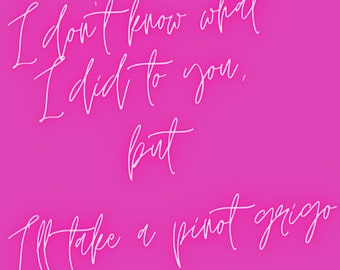 I don't know what
I did to you,
but
I'll take a pinot grigo